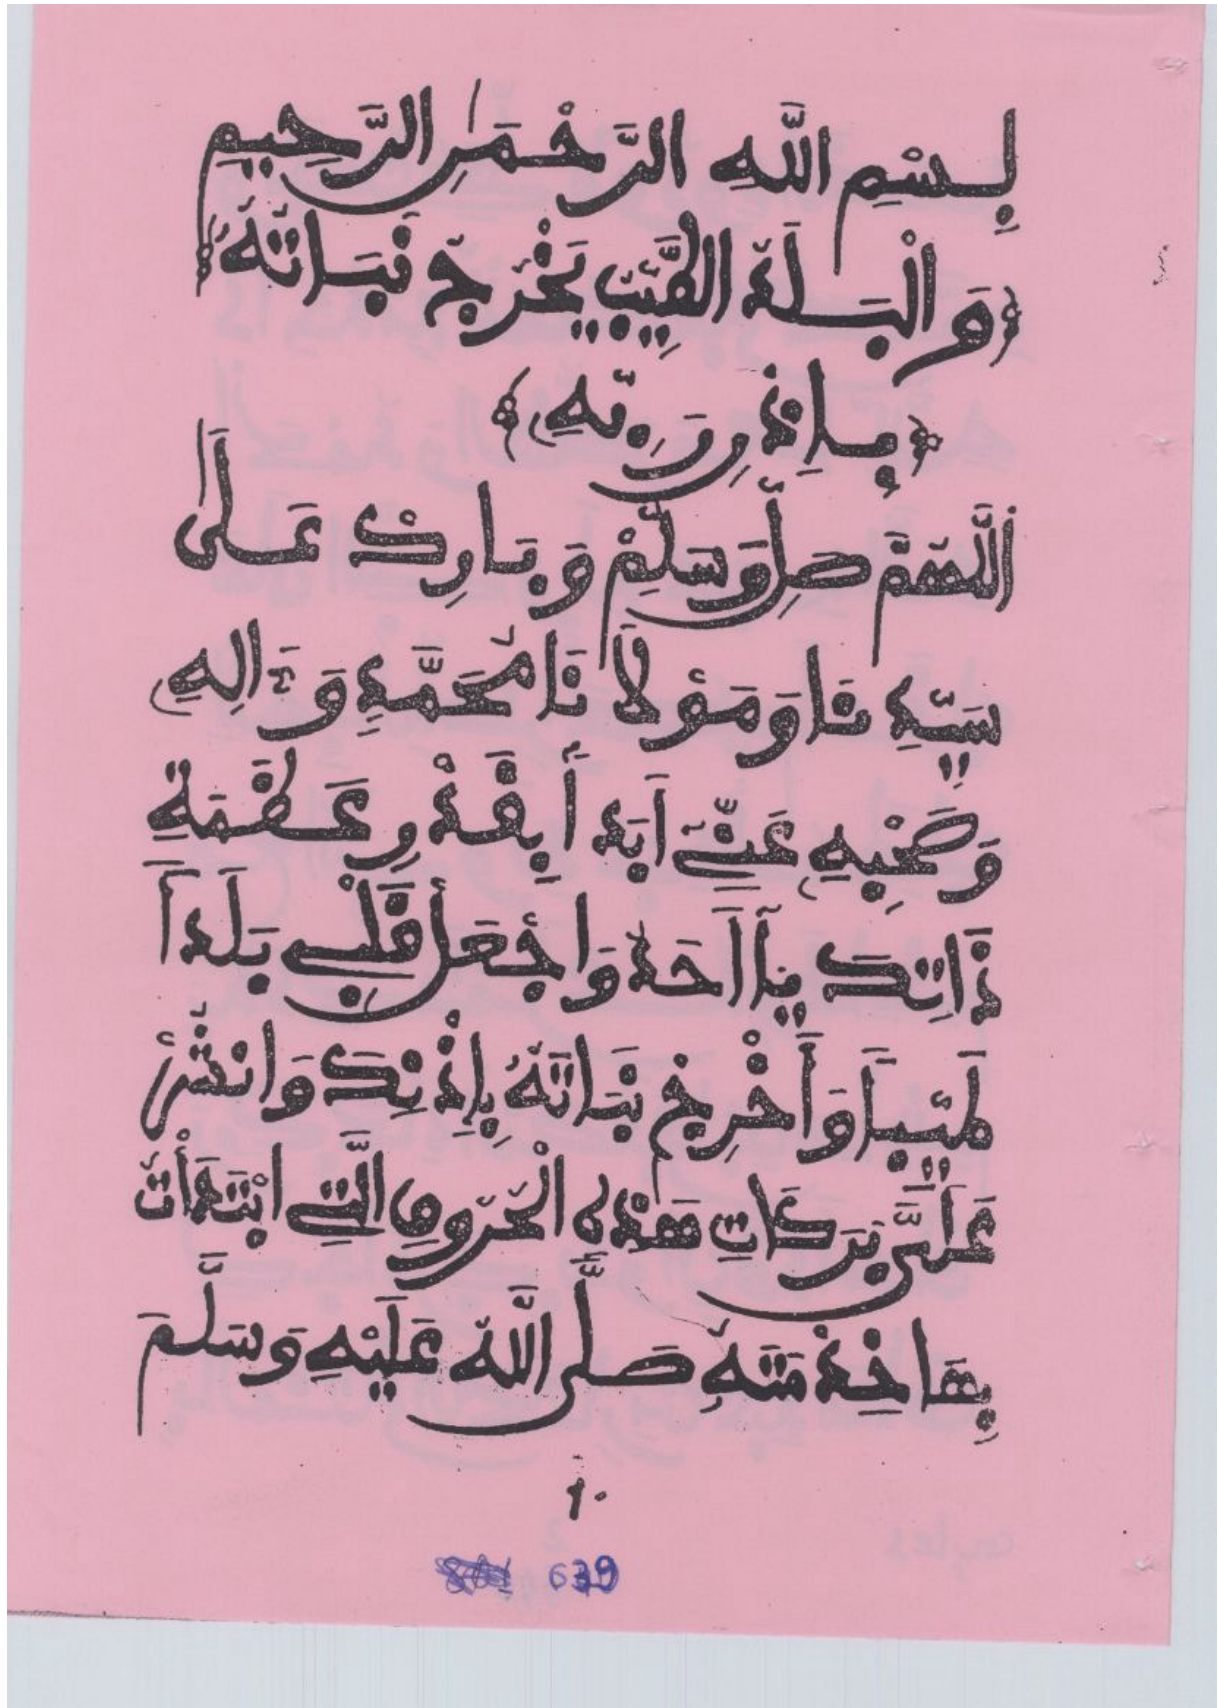 بِسْمِ اللَّهِ الرَّحْمَٰنِ الرَّحِيمِ
﴿وَالْبَلَدُ الطَّيِّبُ يَخْرُجُ نَبَاتُهُ﴾
﴿بِإِذْنِ رَبِّهِ﴾
اَللَّهُمَّ صَلِّ وَسَلِّمْ وَبَارِكْ عَلَىٰ
سَيِّدِنَا وَمَوْلَانَا مُحَمَّدٍ وَءَالِهِ
وَصَحْبِهِ عَنِّي أَبَدًا بِقَدْرِ عَظَمَةِ
ذَاتِكَ يَآ أَحَدُ وَاجْعَلْ قَلْبِي بَلَدًا
طَيِّبًا وَأَخْرِجْ نَبَاتَهُ بِإِذْنِكَ وَانْشُرْ
عَلَيَّ بَرَكَاتِ هَٰذِهِ الْحُرُوفِ الَّتِي ابْتَدَأْتُ
بِهَا خِدْمَتَهُ صَلَّى اللَّهُ عَلَيْهِ وَسَلَّمَ
639